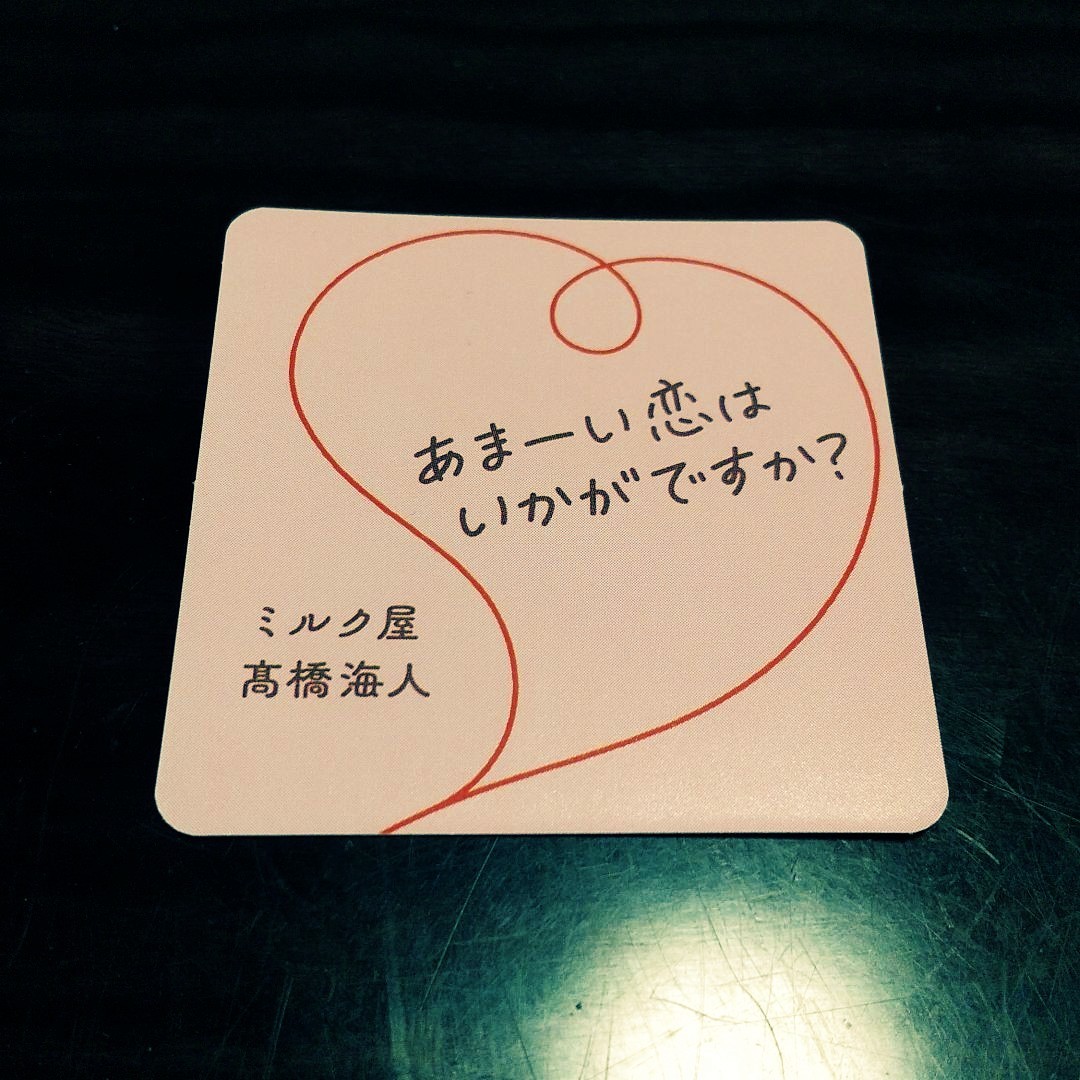 あまーい恋は
いかがですか?
ミルク屋
髙橋海人